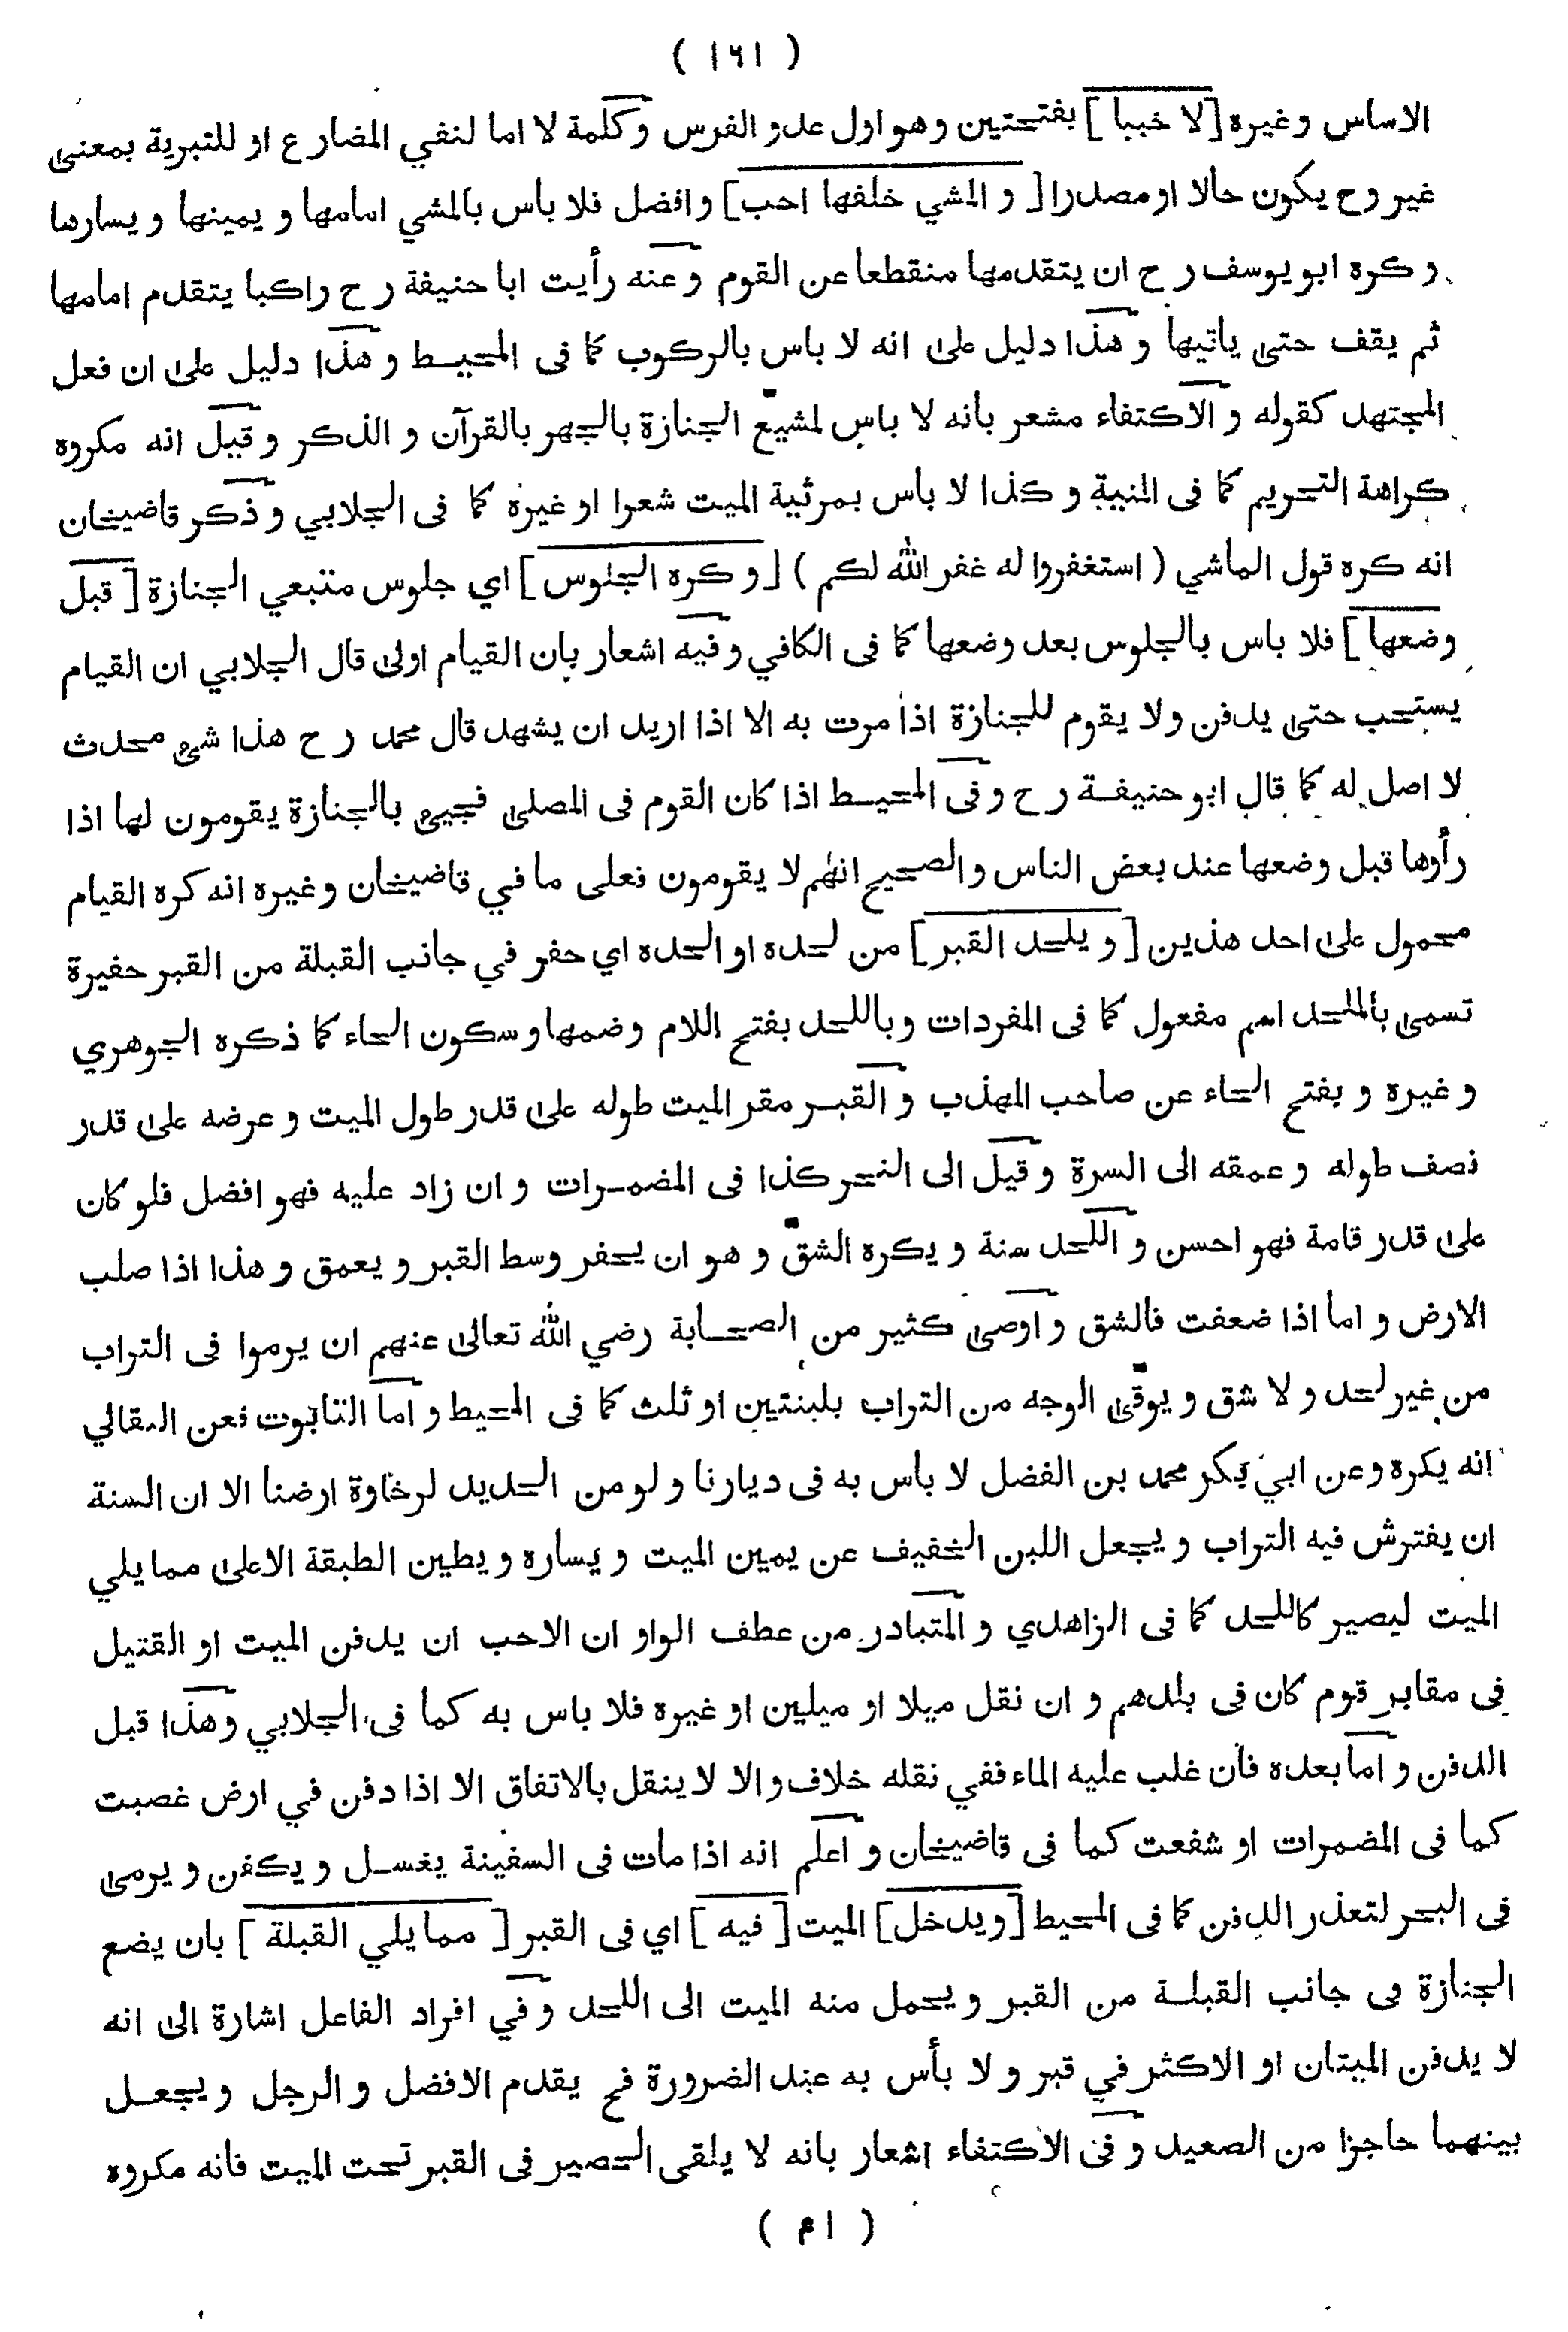 ( ١٦١ )
الاساس وغيره [لا خببا] بفتحتين وهو اول عدو الفرس وكلمة لا اما لنفي المضارع او للتبرية بمعنى
غير وح يكون حالا او مصدرا [و المشي خلفها احب] وافضل فلا باس بالمشي امامها و يمينها و يسارها
و كره ابو يوسف رح ان يتقدمها منقطعا عن القوم وعنه رأيت ابا حنيفة رح راكبا يتقدم امامها
ثم يقف حتى ياتيها و هذا دليل على انه لا باس بالركوب كما فى المحيط و هذا دليل على ان فعل
المجتهد كقوله و الاكتفاء مشعر بانه لا باس لمشيّع الجنازة بالجهر بالقرآن و الذكر و قيل انه مكروه
كراهة التحريم كما فى المنية و كذا لا بأس بمرثية الميت شعرا او غيره كما فى الجلابي و ذكر قاضيخان
انه كره قول الماشي ( استغفروا له غفر الله لكم ) [و كره الجلوس] اي جلوس متبعي الجنازة [قبل
وضعها] فلا باس بالجلوس بعد وضعها كما فى الكافي و فيه اشعار بان القيام اولى قال الجلابي ان القيام
يستحب حتى يدفن ولا يقوم للجنازة اذا مرت به الا اذا اريد ان يشهد قال محمد رح هذا شئ محدث
لا اصل له كما قال ابو حنيفة رح و فى المحيط اذا كان القوم فى المصلى فجيئ بالجنازة يقومون لها اذا
رأوها قبل وضعها عند بعض الناس و الصحيح انهم لا يقومون فعلى ما في قاضيخان وغيره انه كره القيام
محمول على احد هذين [و يلحد القبر] من لحده او الحده اي حفر في جانب القبلة من القبر حفيرة
تسمى بالملحد اسم مفعول كما فى المفردات و باللحد بفتح اللام وضمها و سكون الحاء كما ذكره الجوهري
و غيره و بفتح الحاء عن صاحب المهذب و القبر مقر الميت طوله على قدر طول الميت و عرضه على قدر
نصف طوله و عمقه الى السرة و قيل الى النحر كذا فى المضمرات و ان زاد عليه فهو افضل فلو كان
على قدر قامة فهو احسن و اللحد سنة و يكره الشقّ و هو ان يحفر وسط القبر و يعمق و هذا اذا صلب
الارض و اما اذا ضعفت فالشق و اوصى كثير من الصحابة رضي الله تعالى عنهم ان يرموا فى التراب
من غير لحد و لا شق و يوقّى الوجه من التراب بلبنتين او ثلث كما فى المحيط و اما التابوت فعن البقالي
انه يكره وعن ابي بكر محمد بن الفضل لا بأس به فى ديارنا و لو من الحديد لرخاوة ارضنا الا ان السنة
ان يفترش فيه التراب و يجعل اللبن الخفيف عن يمين الميت و يساره و يطين الطبقة الاعلى مما يلي
الميت ليصير كاللحد كما فى الزاهدي و المتبادر من عطف الواو ان الاحب ان يدفن الميت او القتيل
فى مقابر قوم كان فى بلدهم و ان نقل ميلا او ميلين او غيره فلا باس به كما فى الجلابي وهذا قبل
الدفن و اما بعده فان غلب عليه الماء ففي نقله خلاف و الا لا ينقل بالاتفاق الا اذا دفن في ارض غصبت
كما فى المضمرات او شفعت كما فى قاضيخان و اعلم انه اذا مات فى السفينة يغسل و يكفن و يرمى
فى البحر لتعذر الدفن كما فى المحيط [ويدخل] الميت [فيه] اي فى القبر [مما يلي القبلة] بان يضع
الجنازة فى جانب القبلة من القبر و يحمل منه الميت الى اللحد و في افراد الفاعل اشارة الى انه
لا يدفن الميتان او الاكثر في قبر و لا بأس به عند الضرورة فح يقدم الافضل و الرجل و يجعل
بينهما حاجزا من الصعيد و فى الاكتفاء اشعار بانه لا يلقى الحصير فى القبر تحت الميت فانه مكروه
( ام )